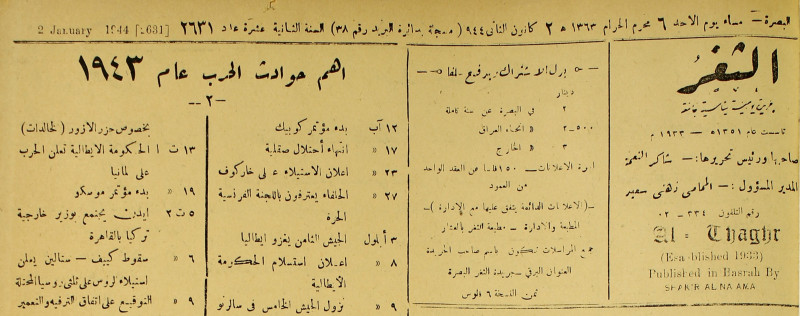 البصرة — مساء يوم الاحد ٦ محرم الحرام ١٣٦٣ ھ ٢ كانون الثانى ٩٤٤ ( مسجلة بدائرة البريد رقم ٣٨) السنة الثانية عشرة عدد ٢٦٣١ 2 January 1944 [2631]
الثغر
جريدة يومية سياسية جامعة
تأسست عام ١٣٥١ ه — ١٩٣٣ م
صاحبها ورئيس تحريرها: — شاكر النعمة
المدير المسؤول: — المحامي ذهني سعيد
رقم التلفون ٣٣٤ — ٠٢
Al - Thaghr
(Esa blished 1933)
Published in Basrah By
SHAKIR AL NAAMA
بدل الاشتراك ويدفع سلفا
دينار
٢ في البصرة عن سنة كاملة
٢-٥٠٠ » انحاء العراق
٣ » الخارج
اجرة الاعلانات — ١٥٠ فلسا عن العقد الواحد
من العمود
—( الاعلانات الدائمة يتفق عليها مع الادارة )—
المطبعة والادارة — مطبعة الثغر بالعشار
جميع المراسلات تكون باسم صاحب الجريدة
العنوان البرقي — جريدة الثغر البصرة
ثمن النسخة ٦ فلوس
اهم حوادث الحرب عام ١٩٤٣
—٢—
١٢ آب بدء مؤتمر كوبيك
١٧ » انتهاء أحتلال صقلية
٢٣ » اعلان الاستيلاء على خاركوف
٢٧ » الحلفاء يعترفون باللجنة الفرنسية
الحرة
٣ أيلول الجيش الثامن يغزو ايطاليا
٨ » اعلان استسلام الحكومة
الايطالية
٩ » نزول الجيش الخامس في سالرنو
بخصوص جزر الازور ( الخالدات )
١٣ ت ١ الحكومة الايطالية تعلن الحرب
على المانيا
١٩ » بدء مؤتمر موسكو
٥ ت ٢ ايدن يجتمع بوزير خارجية
تركيا بالقاهرة
٦ » سقوط كييف — ستالين يعلن
استيلاء الروس على ثلثي روسيا المحتلة
٩ » التوقيع على اتفاق الترفيه والتعمير